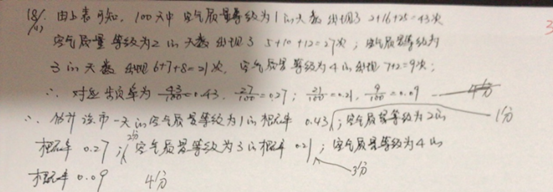 18/(1) 由上表可知，100天中 空气质量等级为1的天数 出现了 2+16+25=43次
空气质量等级为2的天数 出现了 5+10+12=27次；空气质量等级为
3的天数 出现 6+7+8=21次，空气质量等级为4的出现 7+2=9次；
∴ 对应频率为 43/100=0.43，27/100=0.27；21/100=0.21，9/100=0.09 4分
∴ 估计该市一天的空气质量等级为1的概率 0.43；空气质量等级为2的 1分
概率 0.27；2分 空气质量等级为3的概率 0.21；空气质量等级为4的
概率 0.09 4分 3分
3